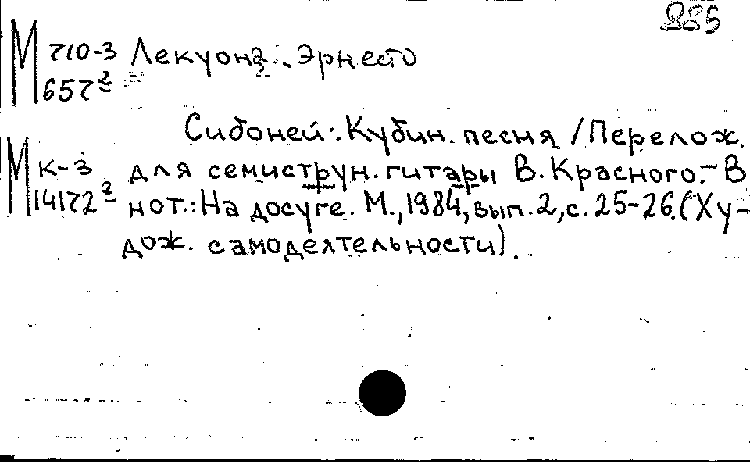 885
М 710-3 Лекуона, Эрнесто
657²
Сибоней: Кубин. песня / Перелож.
М К-3 для семиструн. гитары В. Красного.- В
14172² нот.: На досуге. М., 1984, вып. 2, с. 25-26. (Ху-
дож. самодеятельности).